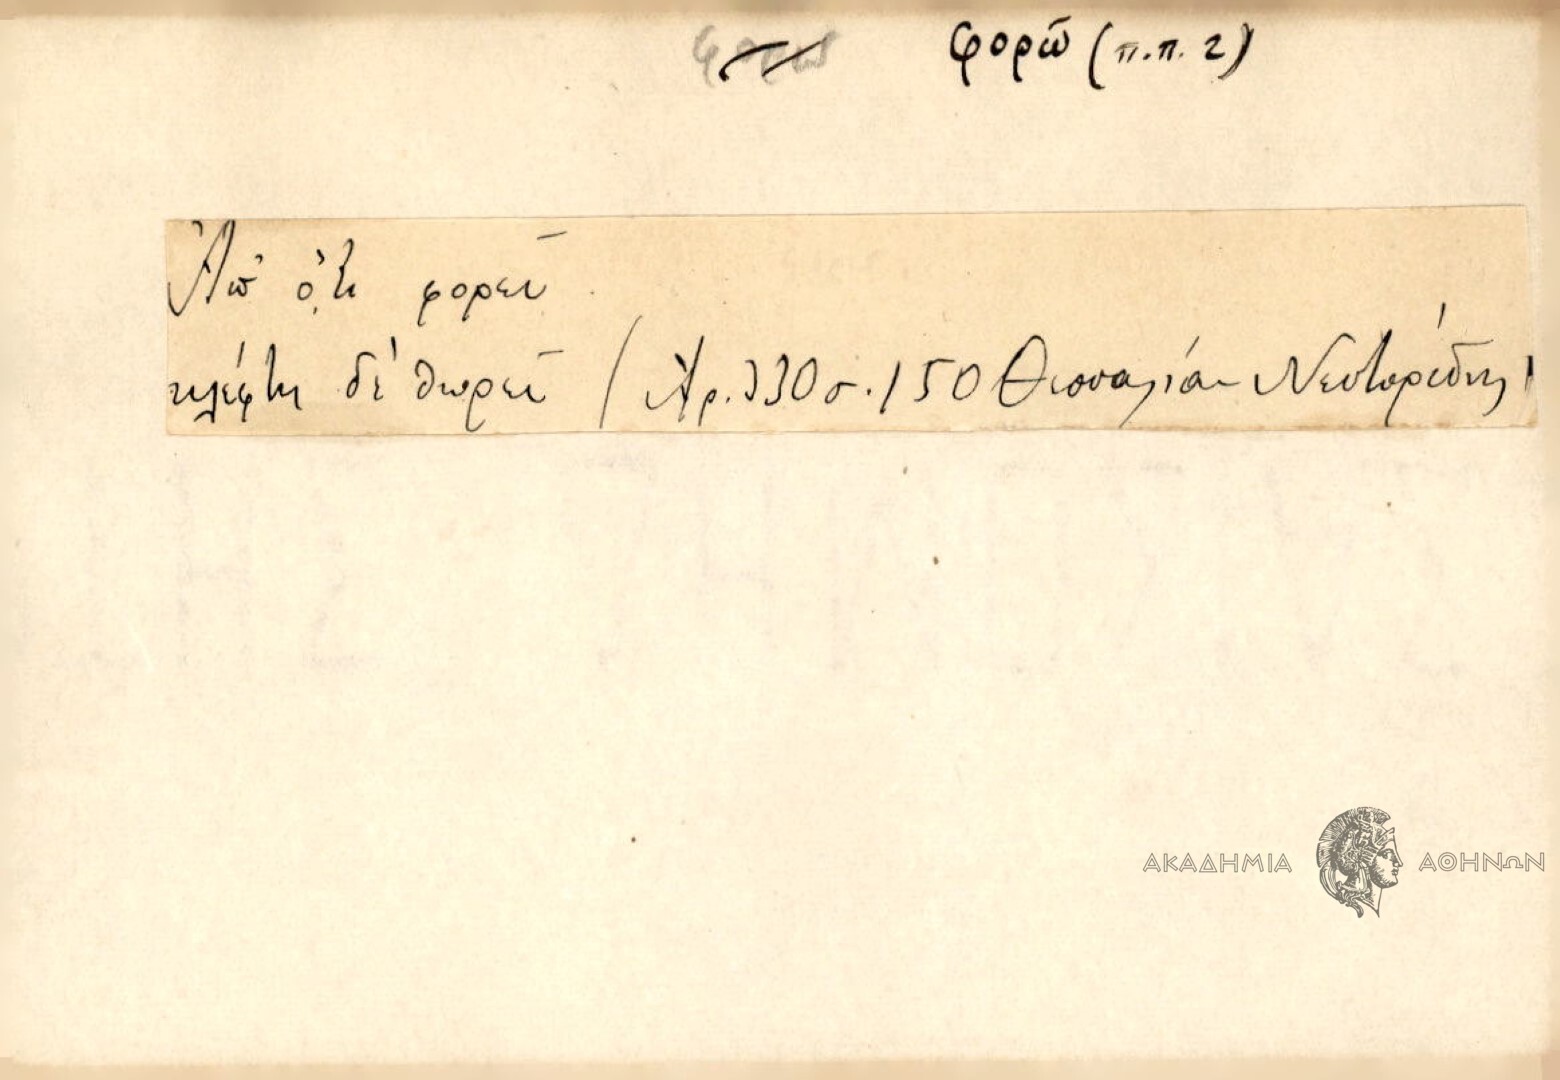 φορῶ φορῶ (π.π. 2)
Ἀπ' ὅ,τι φορεῖ
κλέφτη δὲ θωρεῖ (Ἀρ. 330 σ. 150 Θεσσαλία Νεστορίδης)
ΑΚΑΔΗΜΙΑ ΑΘΗΝΩΝ